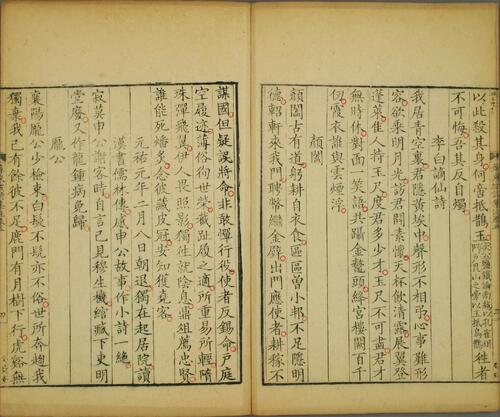 以此殺其身何當抵鵲玉徃者
不可悔吾其反自燭
李白謫仙詩
我居青空裏君隱黃埃中聲形不相弔心事難形
容欲乘明月光訪君開素懷天杯飲清露展翼登
蓬萊佳人持玉尺度君多少才玉尺不可盡君才
無時休對面一笑語共躡金鼇頭絳宮樓闕百千
仞霞衣誰與雲煙浮
顏闔
顏闔古有道躬耕自衣食區區魯小邦不足隱明
德軺軒來我門聘幣繼金璧出門應使者耕稼不
謀國但疑誤將命非敢憚行役使者反錫命戶庭
空履迹薄俗徇世榮截趾履之適所重易所輕隋
珠彈飛翼伊人畏照影獨徃就陰息鼎俎薦忠賢
誰能死燔炙念彼藏皮冠安知獲堯客
元祐元年二月八日朝退獨在起居院讀
漢書儒林傳感申公故事作小詩一絕
寂寞申公謝客時自言已見穆生機綰臧下吏明
堂廢又作龍鍾病免歸
龐公
襄陽龐公少檢束白髮不髠亦不俗世所奔趨我
獨棄我已有餘彼不足鹿門有月樹下行虎谿無